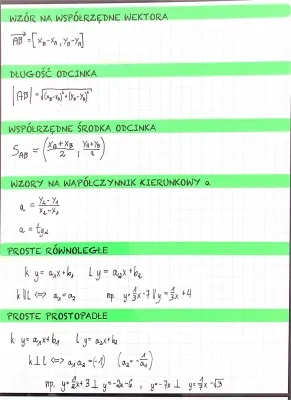 WZÓR NA WSPÓŁRZĘDNE WEKTORA
AB = [x_B - x_A, y_B - y_A]
DŁUGOŚĆ ODCINKA
|AB| = √((x_B - x_A)² + (y_B - y_A)²)
WSPÓŁRZĘDNE ŚRODKA ODCINKA
S_AB = (x_A + x_B / 2, y_A + y_B / 2)
WZORY NA WAPÓŁCZYNNIK KIERUNKOWY a
a = y_2 - y_1 / x_2 - x_1
a = tg
PROSTE RÓWNOLEGŁE
k: y = a_1x + b_1 l: y = a_2x + b_2
k || l <=> a_1 = a_2 np. y = 1/3x - 7 || y = 1/3x + 4
PROSTE PROSTOPADŁE
k: y = a_1x + b_1 l: y = a_2x + b_2
k ⊥ l <=> a_1a_2 = (-1) (a_2 = -1/a_1)
np. y = 1/2x + 3 ⊥ y = -2x - 6 , y = -7x ⊥ y = 1/7x - √3